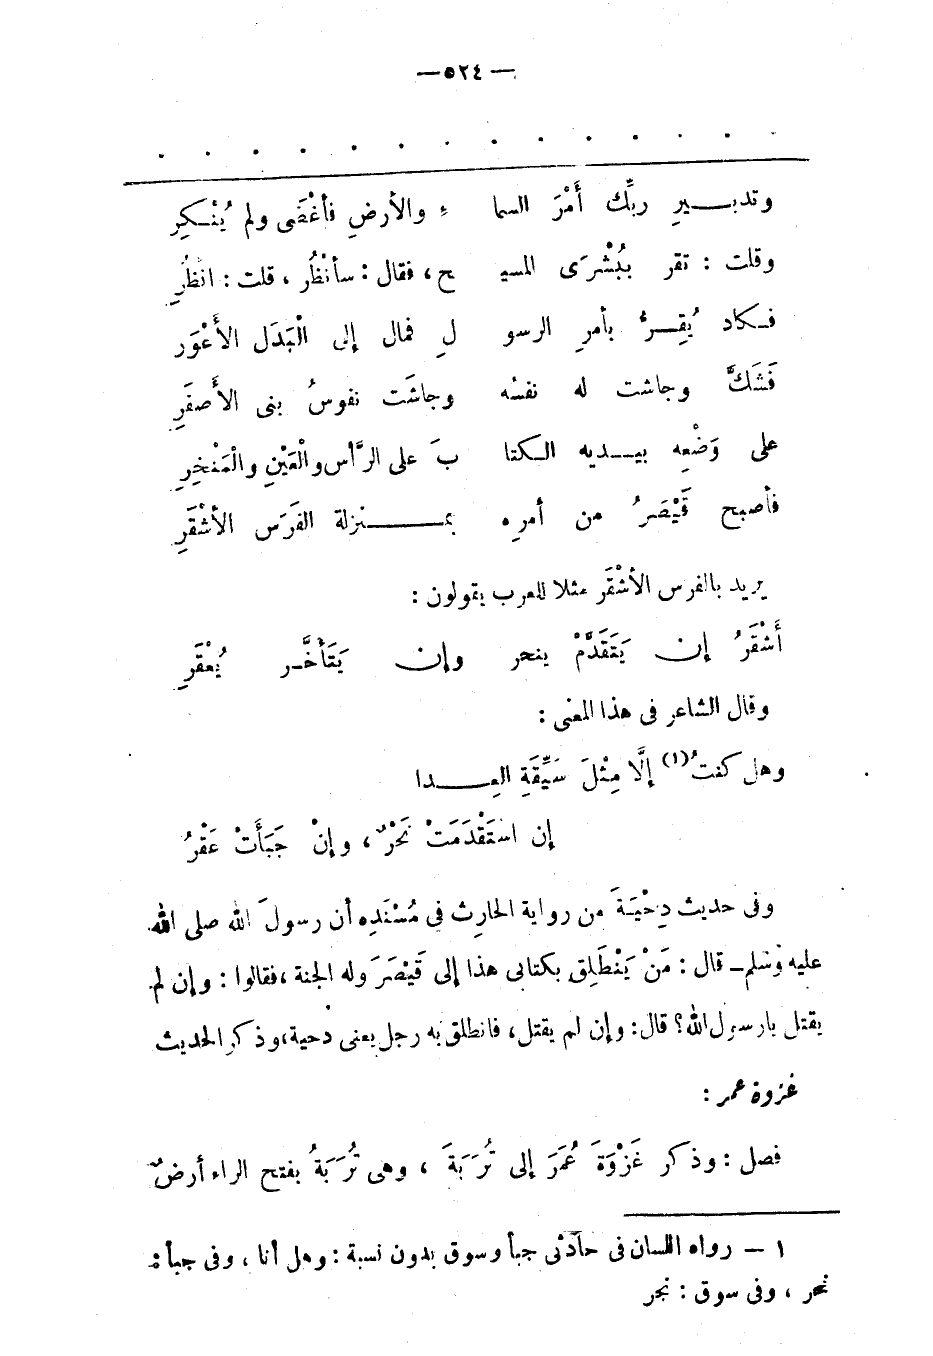 — ٥٢٤ —
وتدبــيرِ ربِّك أَمْرَ السما ءِ والأرضِ فأغْضَى ولم يُنْـكِرِ
وقلت : تقر بُبُشْرَى المسيـ ح ، فقال : سأنْظُر ، قلت : انظُرِ
فـكاد يُقِــرُّ بأمرِ الرسو لِ فمال إلى الْبَدَل الأَعْوَرِ
فَشَكَّ وجاشت له نفسُه وجاشَت نفوسُ بنى الأَصفَرِ
على وَضْعِه بيــديه الـكتا بَ على الرَّأس والْعَيْنِ والْمَنْخِرِ
فأصبح قَيْصَرُ من أمرِه بمــنزلة الفَرَس الأشْقَرِ
يريد بالفرس الأشْقَرِ مثلا للعرب يقولون :
أَشْقَرُ إن يَتَقَدَّمْ ينحر وإن يَتَأَخَّـر يُعْقَرِ
وقال الشاعر فى هذا المعنى :
وهل كنتُ(١) إلَّا مِثْلَ سَيِّقَةِ العِــدا
إن استَقْدَمَتْ نَحْرٌ ، وإنْ جَبَأَتْ عَقْرُ
وفى حديث دِحْيَةَ من رواية الحارِث فى مُسْنَدِه أن رسولَ الله صلى الله
عليه وسلم ــ قال : مَنْ يَنْطَلِق بكتابى هذا إلى قَيْصَرَ وله الجنة ، فقالوا : وإن لم
يقتل يارسول الله ؟ قال : وإن لم يقتل ، فانطلق به رجل يعنى دحية ، وذكر الحديث
غزوة عمر :
فصل : وذكر غَزْوَةَ عُمَرَ إلى تُرَبَةَ ، وهى تُرَبَةُ بفتح الراء أرضٌ
١ — رواه اللسان فى مادتى جبأ وسوق بدون نسبة : وهل أنا ، وفى جبأ :
نحر ، وفى سوق : نجر